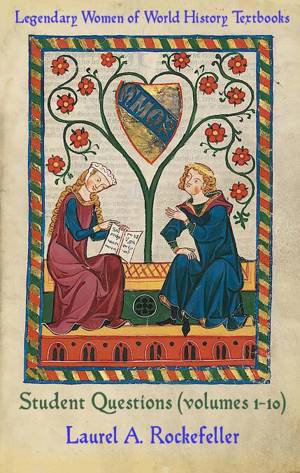 Legendary Women of World History Textbooks
AMOR
Student Questions (volumes 1-10)
Laurel A. Rockefeller